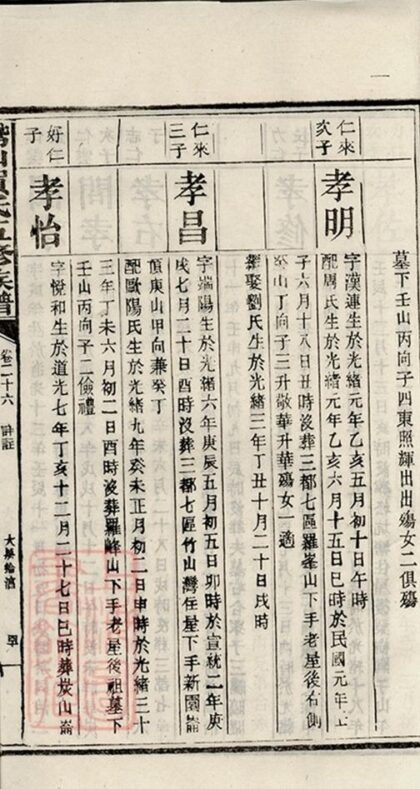 墓下壬山丙向子四東照輝出出殤女二俱殤
仁來
次子
孝明
字漢連生於光緒元年乙亥五月初十日午時
配周氏生於光緒元年乙亥六月十五日巳時於民國元年壬
子六月十八日丑時沒葬三都七區羅峰山下手老屋後右側
丁向子三升敬華升華殤女一適
繼娶劉氏生於光緒三年丁丑十月二十日戌時
仁來
三子
孝昌
字端陽生於光緒六年庚辰五月初五日卯時於宣統二年庚
戌七月二十日酉時沒葬三都七區竹山灣住屋下手新園崙
頂庚山甲向兼癸丁
配歐陽氏生於光緒九年癸未正月初二日申時於光緒三十
三年丁未六月初二日酉時沒葬羅峰山下手老屋後祖墓下
壬山丙向子二儉禮
好仁
子
孝怡
字悅和生於道光七年丁亥十二月二十七日巳時葬炭山崙
氏五修族譜
卷二十六